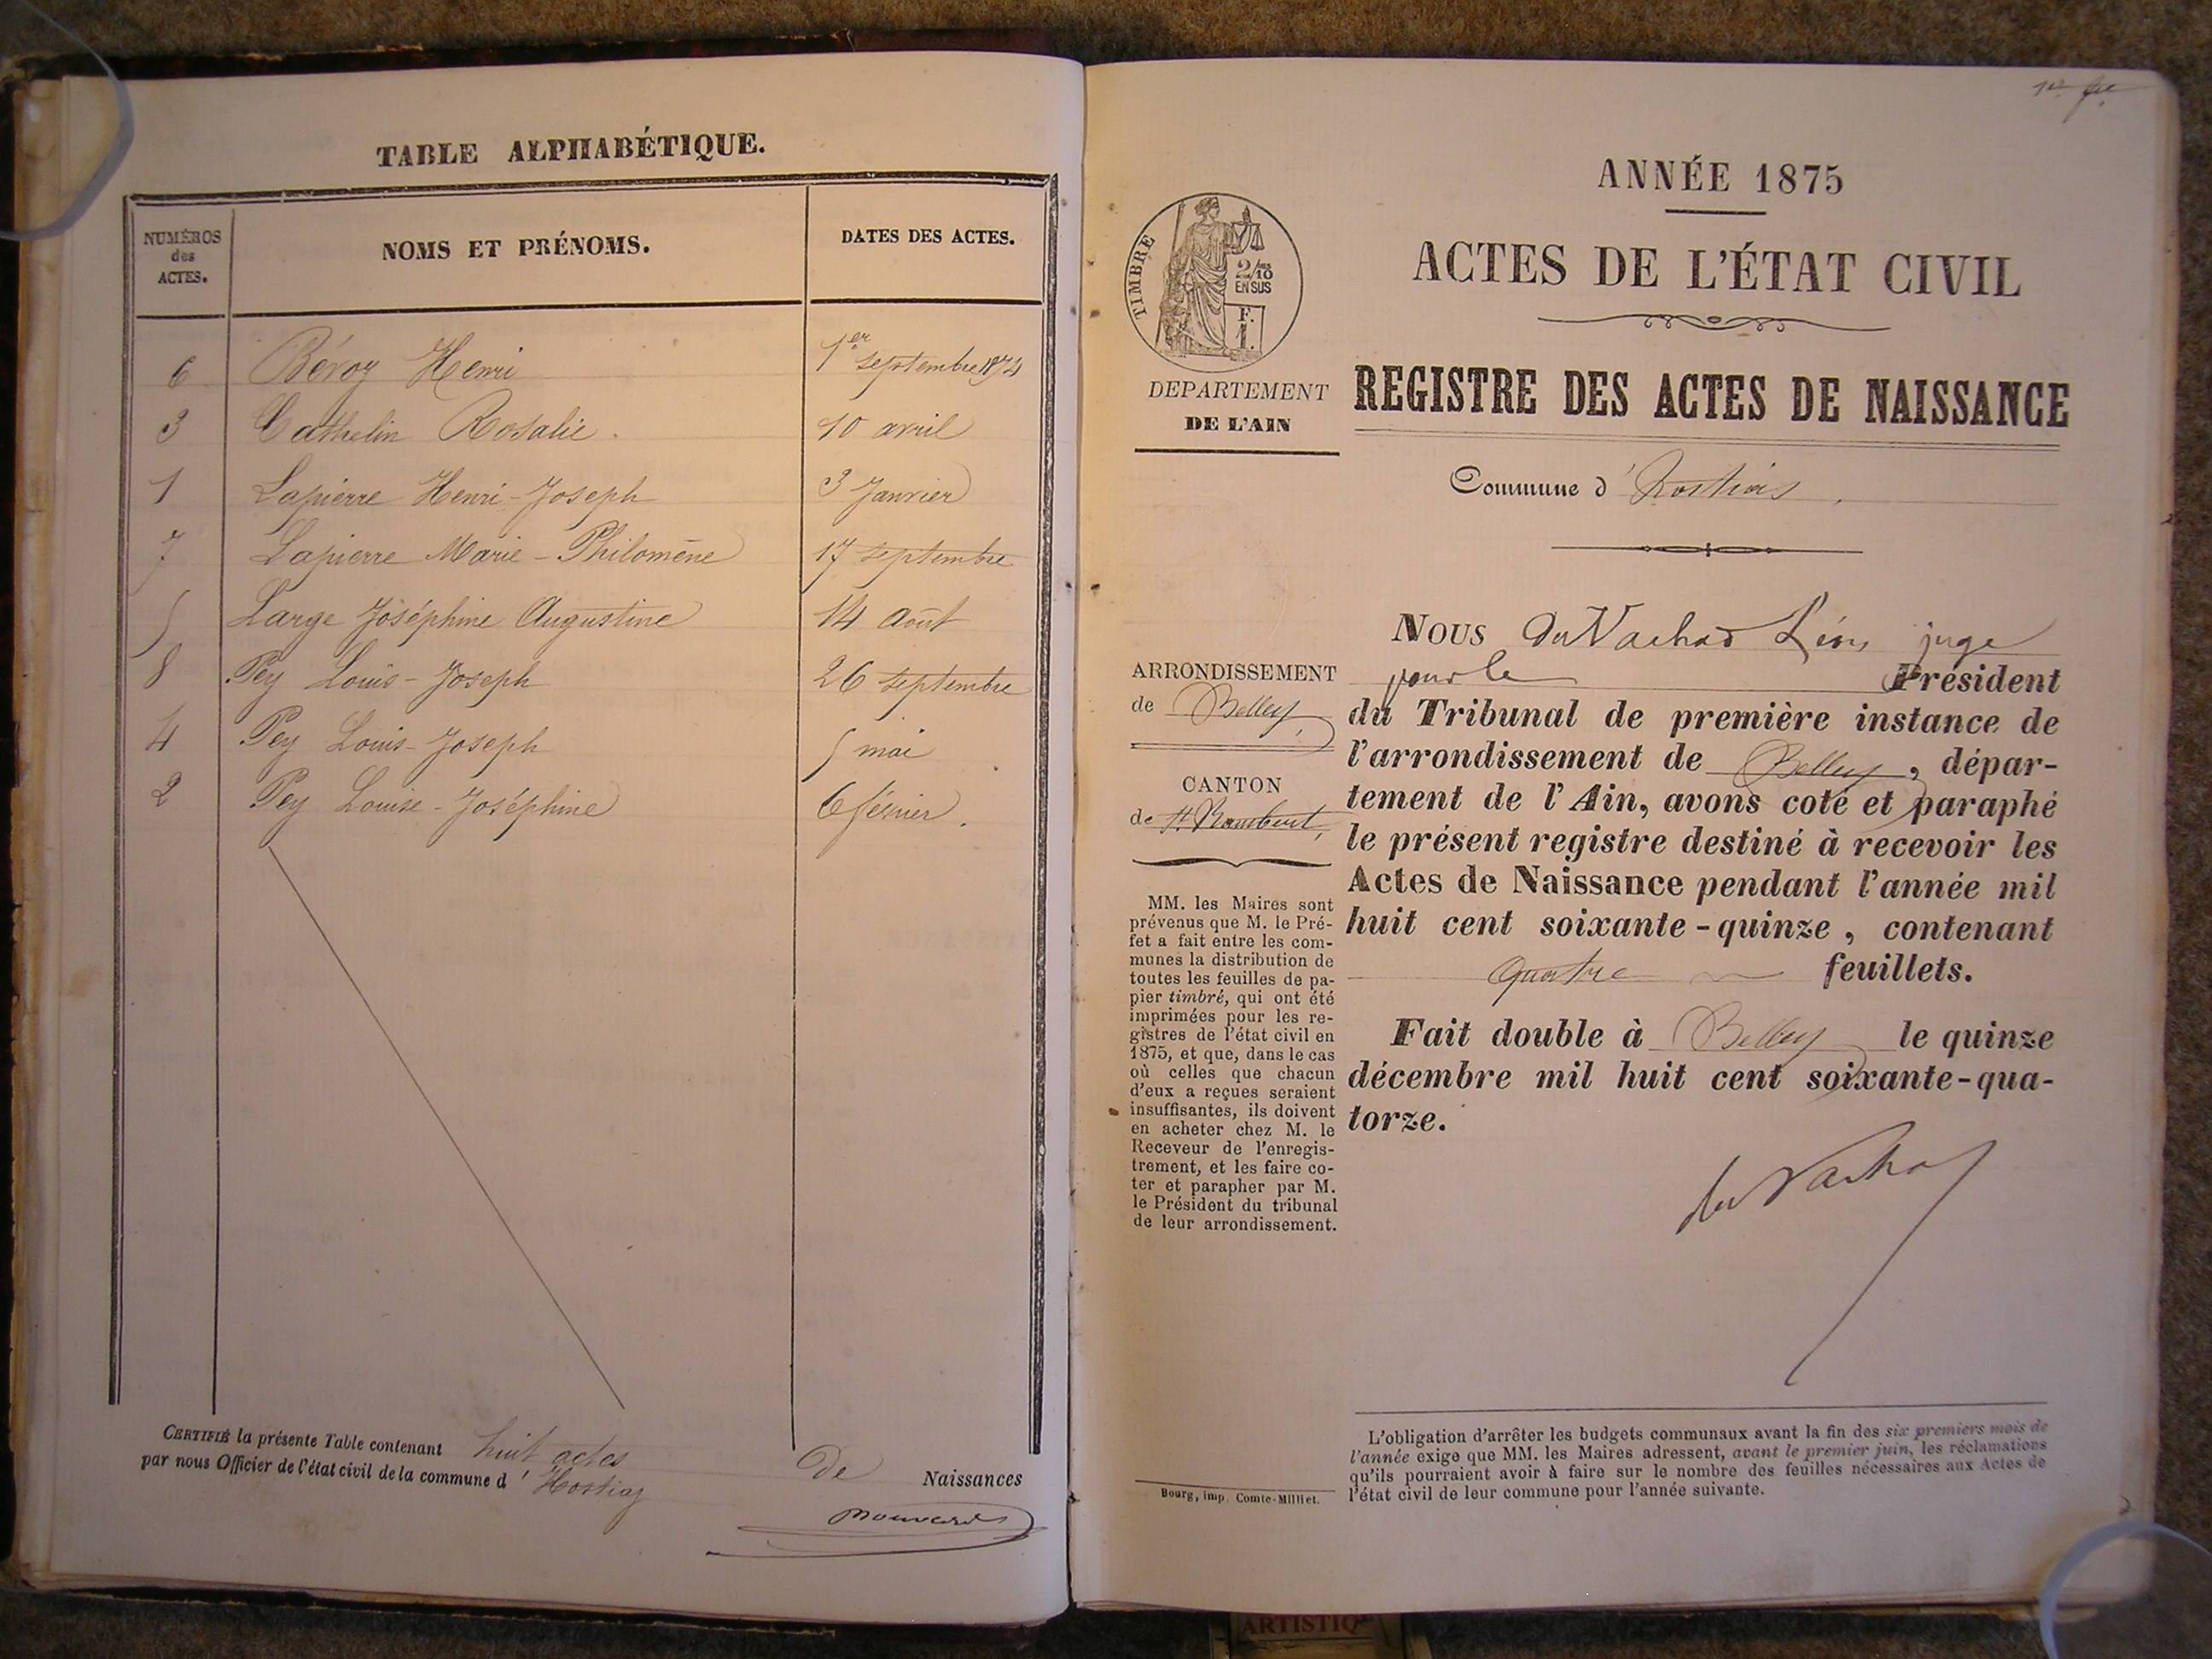 TABLE ALPHABÉTIQUE.
NUMÉROS des ACTES. NOMS ET PRÉNOMS. DATES DES ACTES.
6 Béroz Henri 1er septembre 1874
3 Cathelin Rosalie. 10 avril
1 Lapierre Henri-Joseph 3 Janvier
7 Lapierre Marie-Philomène 17 septembre
5 Large Joséphine Augustine 14 août
8 Pey Louis-Joseph 26 septembre
4 Pey Louis-Joseph 5 mai
2 Pey Louise-Joséphine 6 février.
CERTIFIÉ la présente Table contenant huit actes De Naissances
par nous Officier de l'état civil de la commune d'Hostiaz
1er
ANNÉE 1875
ACTES DE L'ÉTAT CIVIL
TIMBRE
2/10
EN SUS
F.
1.
DEPARTEMENT
DE L'AIN
REGISTRE DES ACTES DE NAISSANCE
Commune d'Hostias,
ARRONDISSEMENT
de Belley,
CANTON
de St Rambert,
MM. les Maires sont
prévenus que M. le Pré-
fet a fait entre les com-
munes la distribution de
toutes les feuilles de pa-
pier timbré, qui ont été
imprimées pour les re-
gistres de l'état civil en
1875, et que, dans le cas
où celles que chacun
d'eux a reçues seraient
insuffisantes, ils doivent
en acheter chez M. le
Receveur de l'enregis-
trement, et les faire co-
ter et parapher par M.
le Président du tribunal
de leur arrondissement.
Bourg, imp. Comte-Milliet.
NOUS du Vachat Léon, juge
pour le Président
du Tribunal de première instance de
l'arrondissement de Belley, dépar-
tement de l'Ain, avons coté et paraphé
le présent registre destiné à recevoir les
Actes de Naissance pendant l'année mil
huit cent soixante-quinze, contenant
quatre feuillets.
Fait double à Belley le quinze
décembre mil huit cent soixante-qua-
torze.
du Vachat
L'obligation d'arrêter les budgets communaux avant la fin des six premiers mois de
l'année exige que MM. les Maires adressent, avant le premier juin, les réclamations
qu'ils pourraient avoir à faire sur le nombre des feuilles nécessaires aux Actes de
l'état civil de leur commune pour l'année suivante.
ARTISTIQ